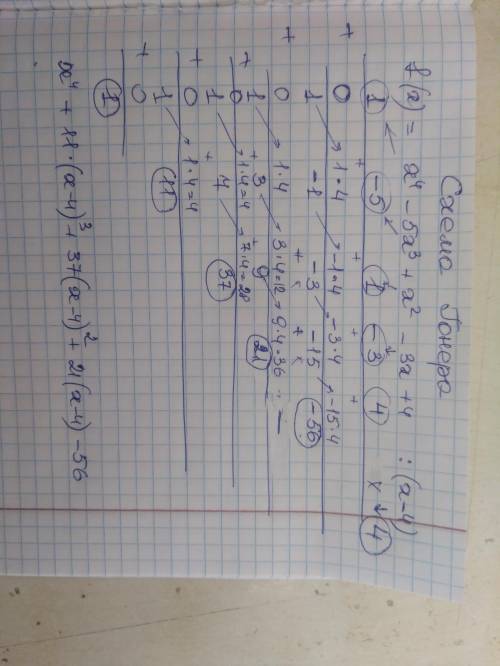 Схема Гонера
f(x) = x⁴ - 5x³ + x² - 3x + 4 : (x-4)
1 -5 1 -3 4 4
+ 0 1·4 -1·4 -3·4 -15·4
1 -1 -3 -15 -56
+ 0 1·4 3·4=12 9·4=36
1 3 9 21
+ 0 1·4=4 7·4=28
1 4 37
+ 0 1·4=4
1 11
+ 0
1
x⁴ + 11·(x-4)³ + 37(x-4)² + 21(x-4) - 56